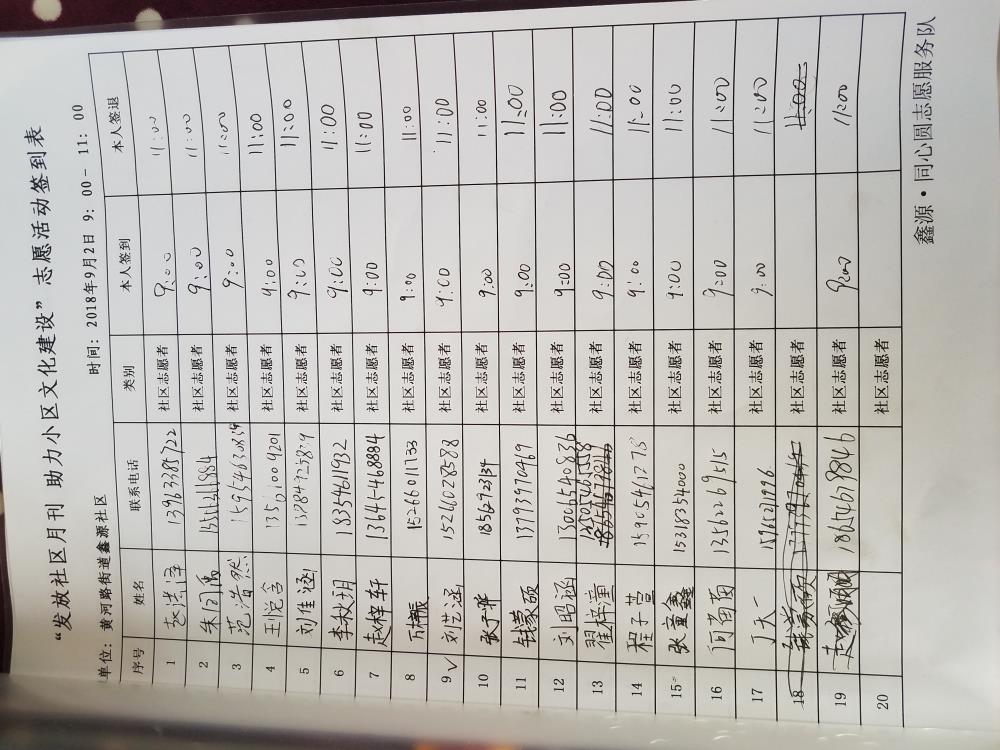 “发放社区月刊 助力小区文化建设”志愿活动签到表
单位：黄河路街道鑫源社区 时间：2018年9月2日 9：00－11：00
序号 姓名 联系电话 类别 本人签到 本人签退
1 社区志愿者 9:00 11:00
2 社区志愿者 9:00 11:00
3 范浩然 社区志愿者 9:00 11:00
4 王悦含 社区志愿者 9:00 11:00
5 刘佳涵 社区志愿者 9:00 11:00
6 李秋玥 18354611932 社区志愿者 9:00 11:00
7 赵梓轩 13645468884 社区志愿者 9:00 11:00
8 15266011733 社区志愿者 9:00 11:00
9 刘艺涵 15266028588 社区志愿者 9:00 11:00
10 张子骅 18562923134 社区志愿者 9:00 11:00
11 钱蒙硕 13793970469 社区志愿者 9:00 11:00
12 刘昭涵 13001540836 社区志愿者 9:00 11:00
13 翟梓童 社区志愿者 9:00 11:00
14 程子萱 社区志愿者 9:00 11:00
15 张鑫鑫 15318354000 社区志愿者 9:00 11:00
16 何苗苗 13562269515 社区志愿者 9:00 11:00
17 丁大 社区志愿者 9:00 11:00
18 钱蒙硕 社区志愿者 11:00
19 18654679846 社区志愿者 9:00 11:00
20 社区志愿者
鑫源·同心圆志愿服务队